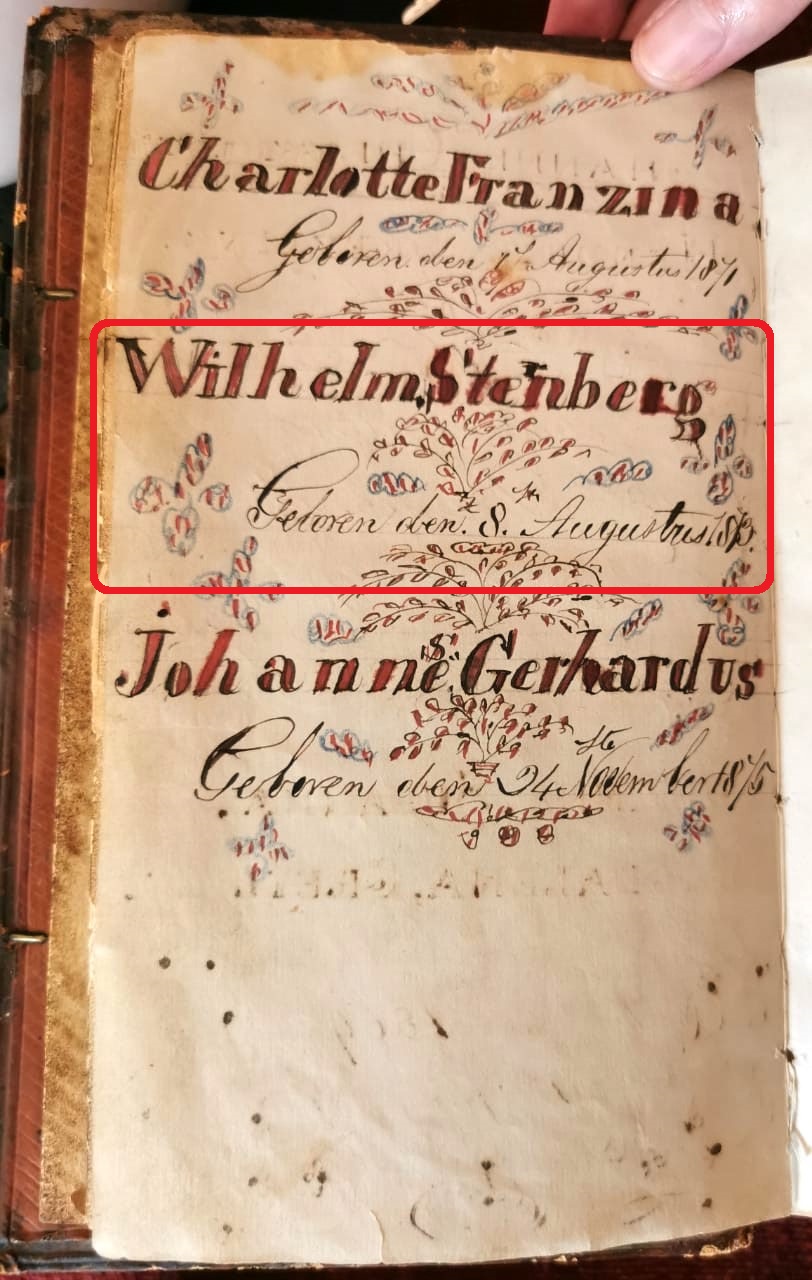 Charlotte Franzina
Geboren den 7de Augustus 1871
Wilhelm Stenberg
Geboren den 8ste Augustus 1873
Johannes Gerhardus
Geboren den 24ste November 1875